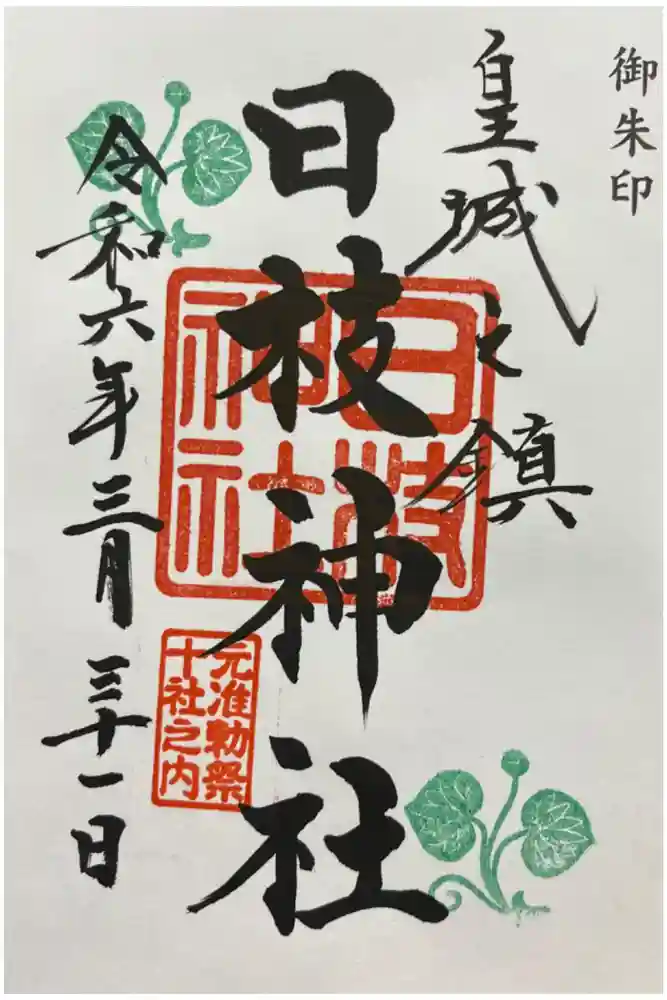 御朱印
皇城之鎮
日枝神社
日枝
神社
元准勅祭
十社之内
令和六年三月三十一日